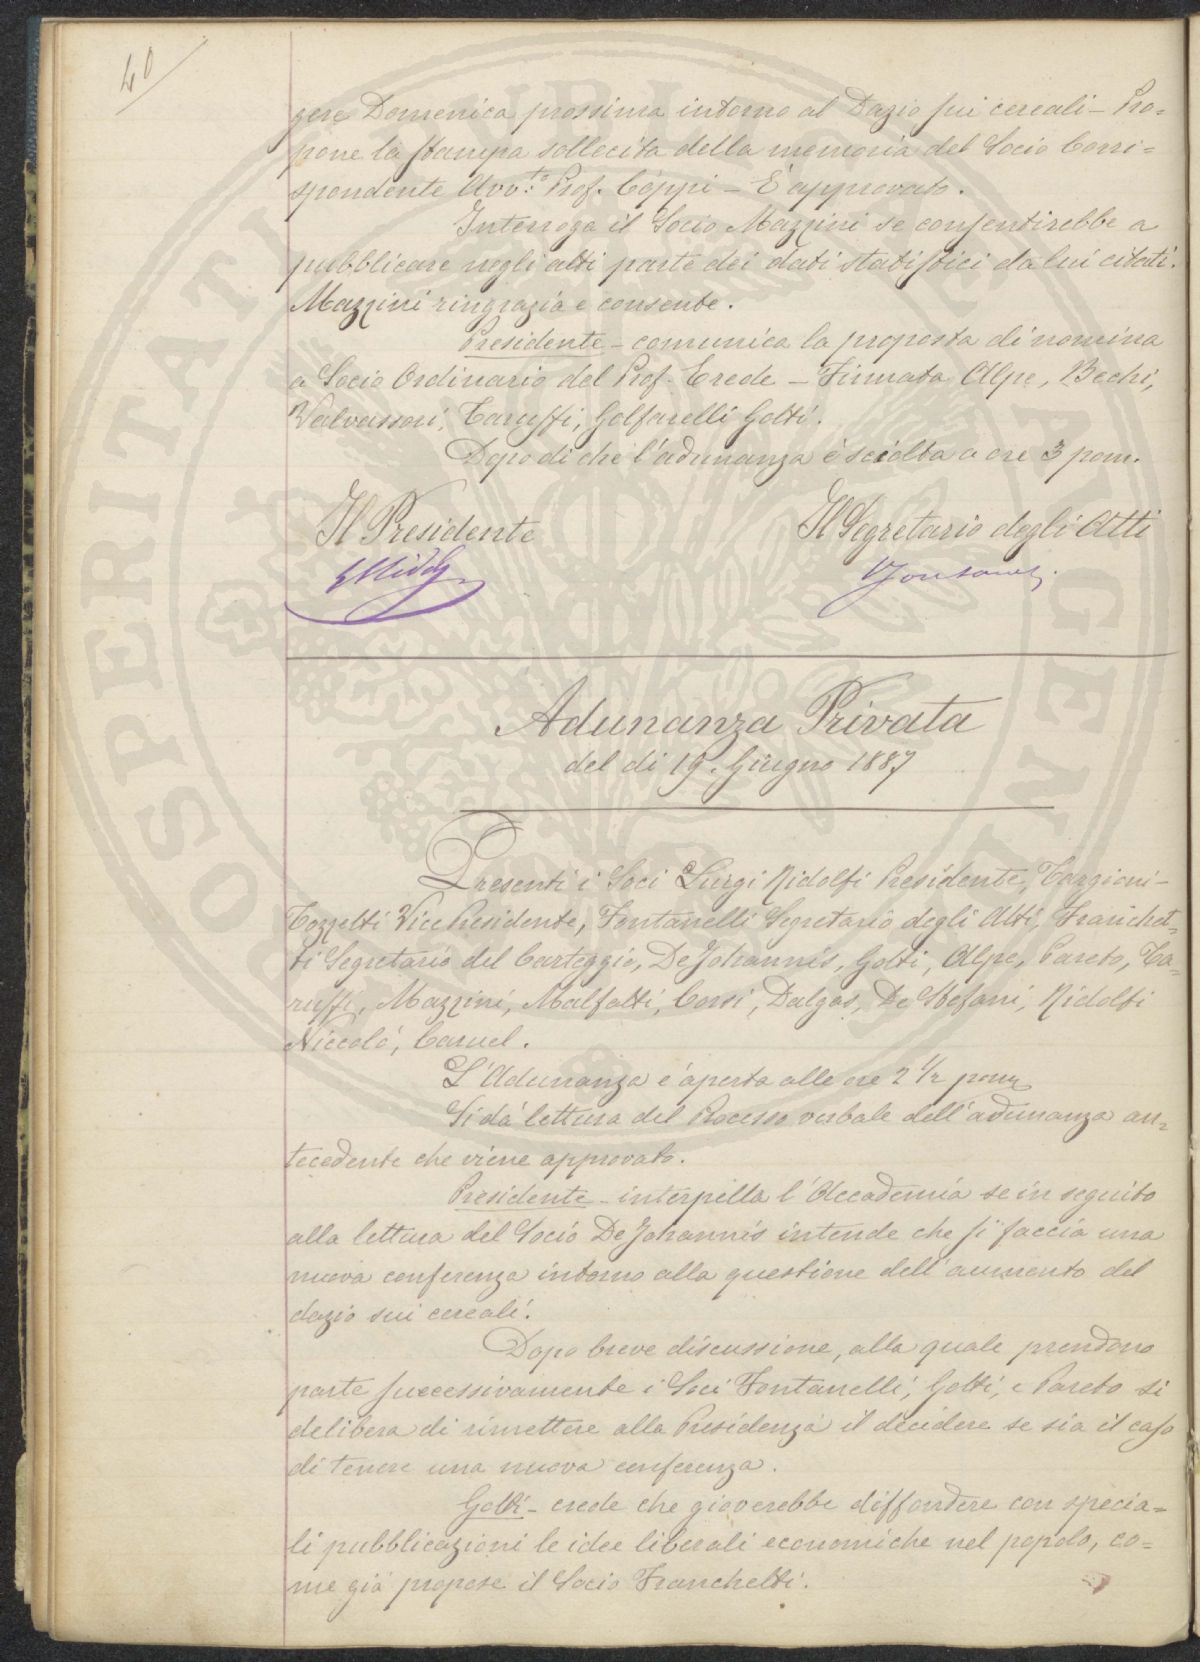 40
gere Domenica prossima intorno al Dazio sui cereali – Pro=
pone la stampa sollecita della memoria del Socio Corri=
spondente Avv.to Prof. Coppi – È approvato.
Interroga il Socio Mazzini se consentirebbe a
pubblicare negli atti parte dei dati statistici da lui citati.
Mazzini ringrazia e consente.
Presidente – comunica la proposta di nomina
a Socio Ordinario del Prof. Erede – Firmata Alpe, Bechi,
Valvassori, Taruffi, Golfarelli Gotti.
Dopo di che l'adunanza è sciolta a ore 3 pom.
Il Presidente
Il Segretario degli Atti
LRidolfi
Fontanelli
Adunanza Privata
del dì 19. Giugno 1887
Presenti i Soci Luigi Ridolfi Presidente, Targioni-
Tozzetti Vice Presidente, Fontanelli Segretario degli Atti, Franchet=
ti Segretario del Carteggio, De Johannis, Gotti, Alpe, Pareto, Ta=
ruffi, Mazzini, Malfatti, Corsi, Dalgas, De Stefani, Ridolfi
Niccolò, Caruel.
L'Adunanza è aperta alle ore 2 1/2 pom
Si dà lettura del Processo verbale dell'adunanza an=
tecedente che viene approvato.
Presidente – interpella l'Accademia se in seguito
alla lettura del Socio De Johannis intende che si faccia una
nuova conferenza intorno alla questione dell'aumento del
dazio sui cereali.
Dopo breve discussione, alla quale prendono
parte successivamente i Soci Fontanelli, Gotti, e Pareto si
delibera di rimettere alla Presidenza il decidere se sia il caso
di tenere una nuova conferenza.
Gotti – crede che gioverebbe diffondere con specia=
li pubblicazioni le idee liberali economiche nel popolo, co=
me già propose il Socio Franchetti.
PROSPERITATI PUBLICAE AUGENDAE